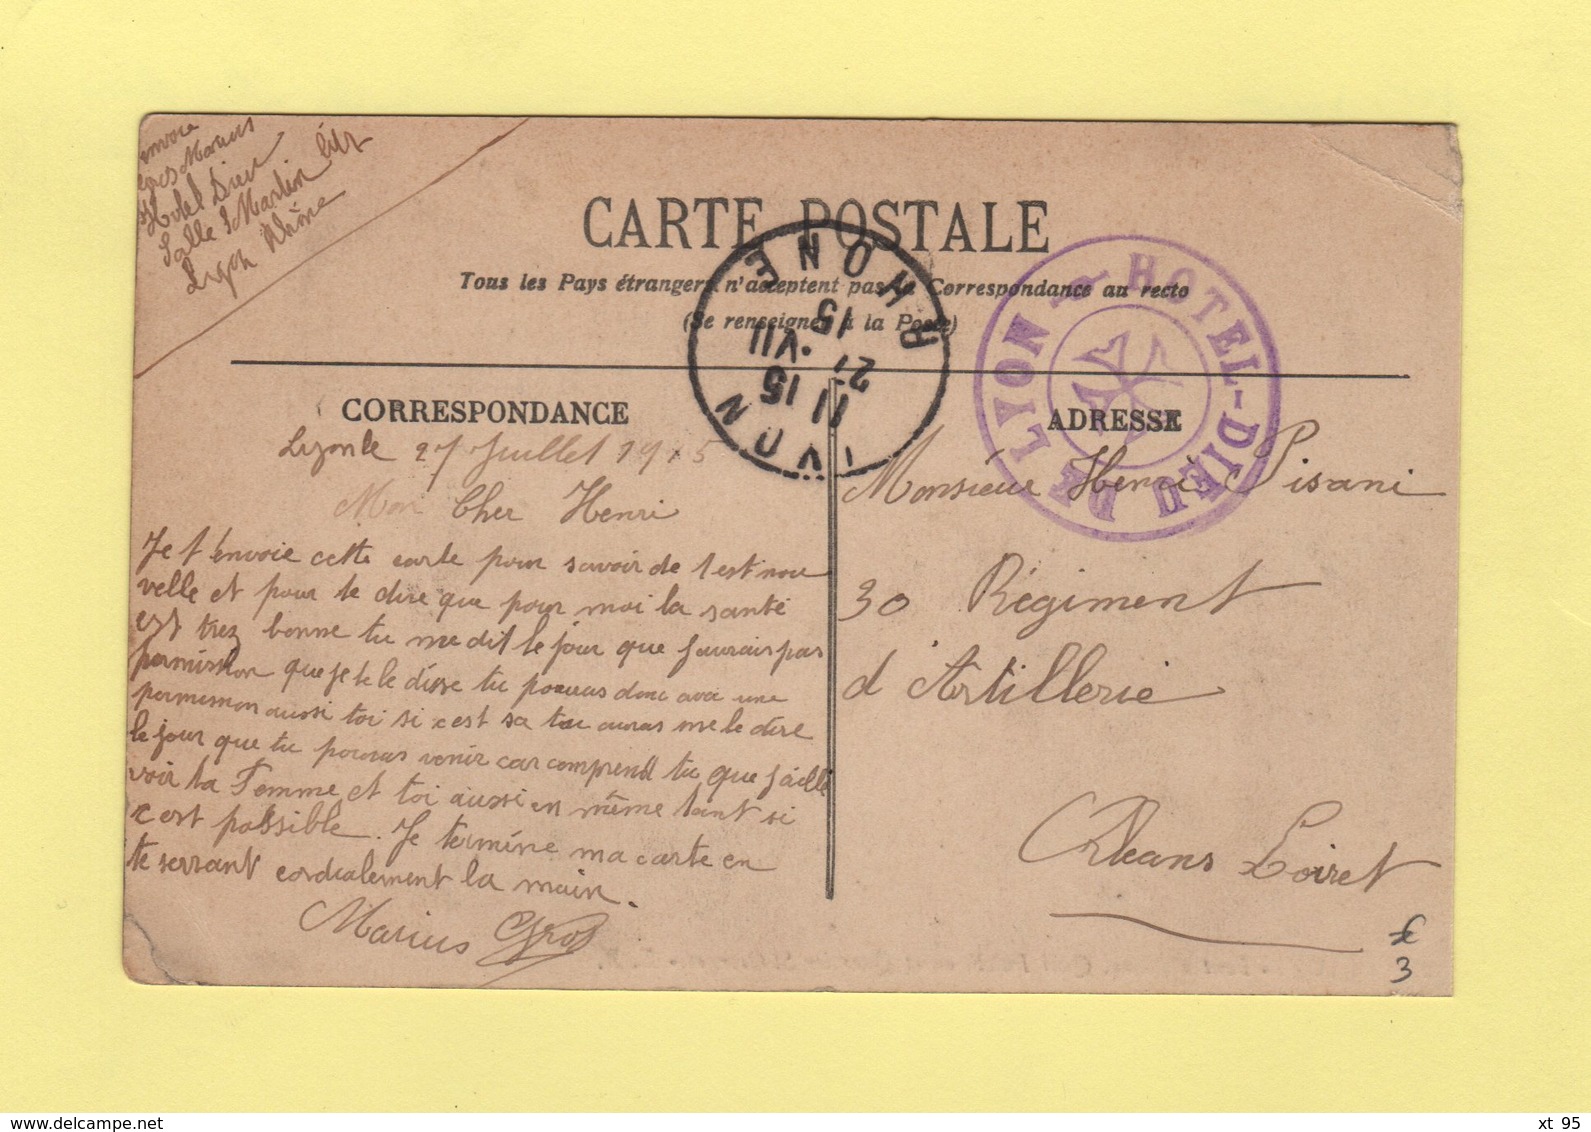 envoie
Gros Marius
Hotel Dieu
Salle St Martin lit
Lyon Rhône
CARTE POSTALE
Tous les Pays étrangers n'acceptent pas la Correspondance au recto
(Se renseigner à la Poste)
LYON RHONE
11 15
21 VII
15
HOTEL-DIEU DE LYON
CORRESPONDANCE
ADRESSE
Lyon le 27 Juillet 1915
Mon Cher Henri
Je t'envoie cette carte pour savoir de test nou
velle et pour te dire que pour moi la santé
est trez bonne tu me dit le jour que jaurais pas
permission que je te le disse tu pouras donc avoi une
permission aussi toi si c'est sa tu auras me le dire
le jour que tu pouras venir car comprend tu que j'aille
voir ta Femme et toi aussi en même tant si
c'est possible. Je termine ma carte en
te serrant cordialement la main.
Marius Gros
Monsieur Henri Pisani
30 Régiment
d'Artillerie
Orléans Loiret
€
3
www.delcampe.net
xt_95